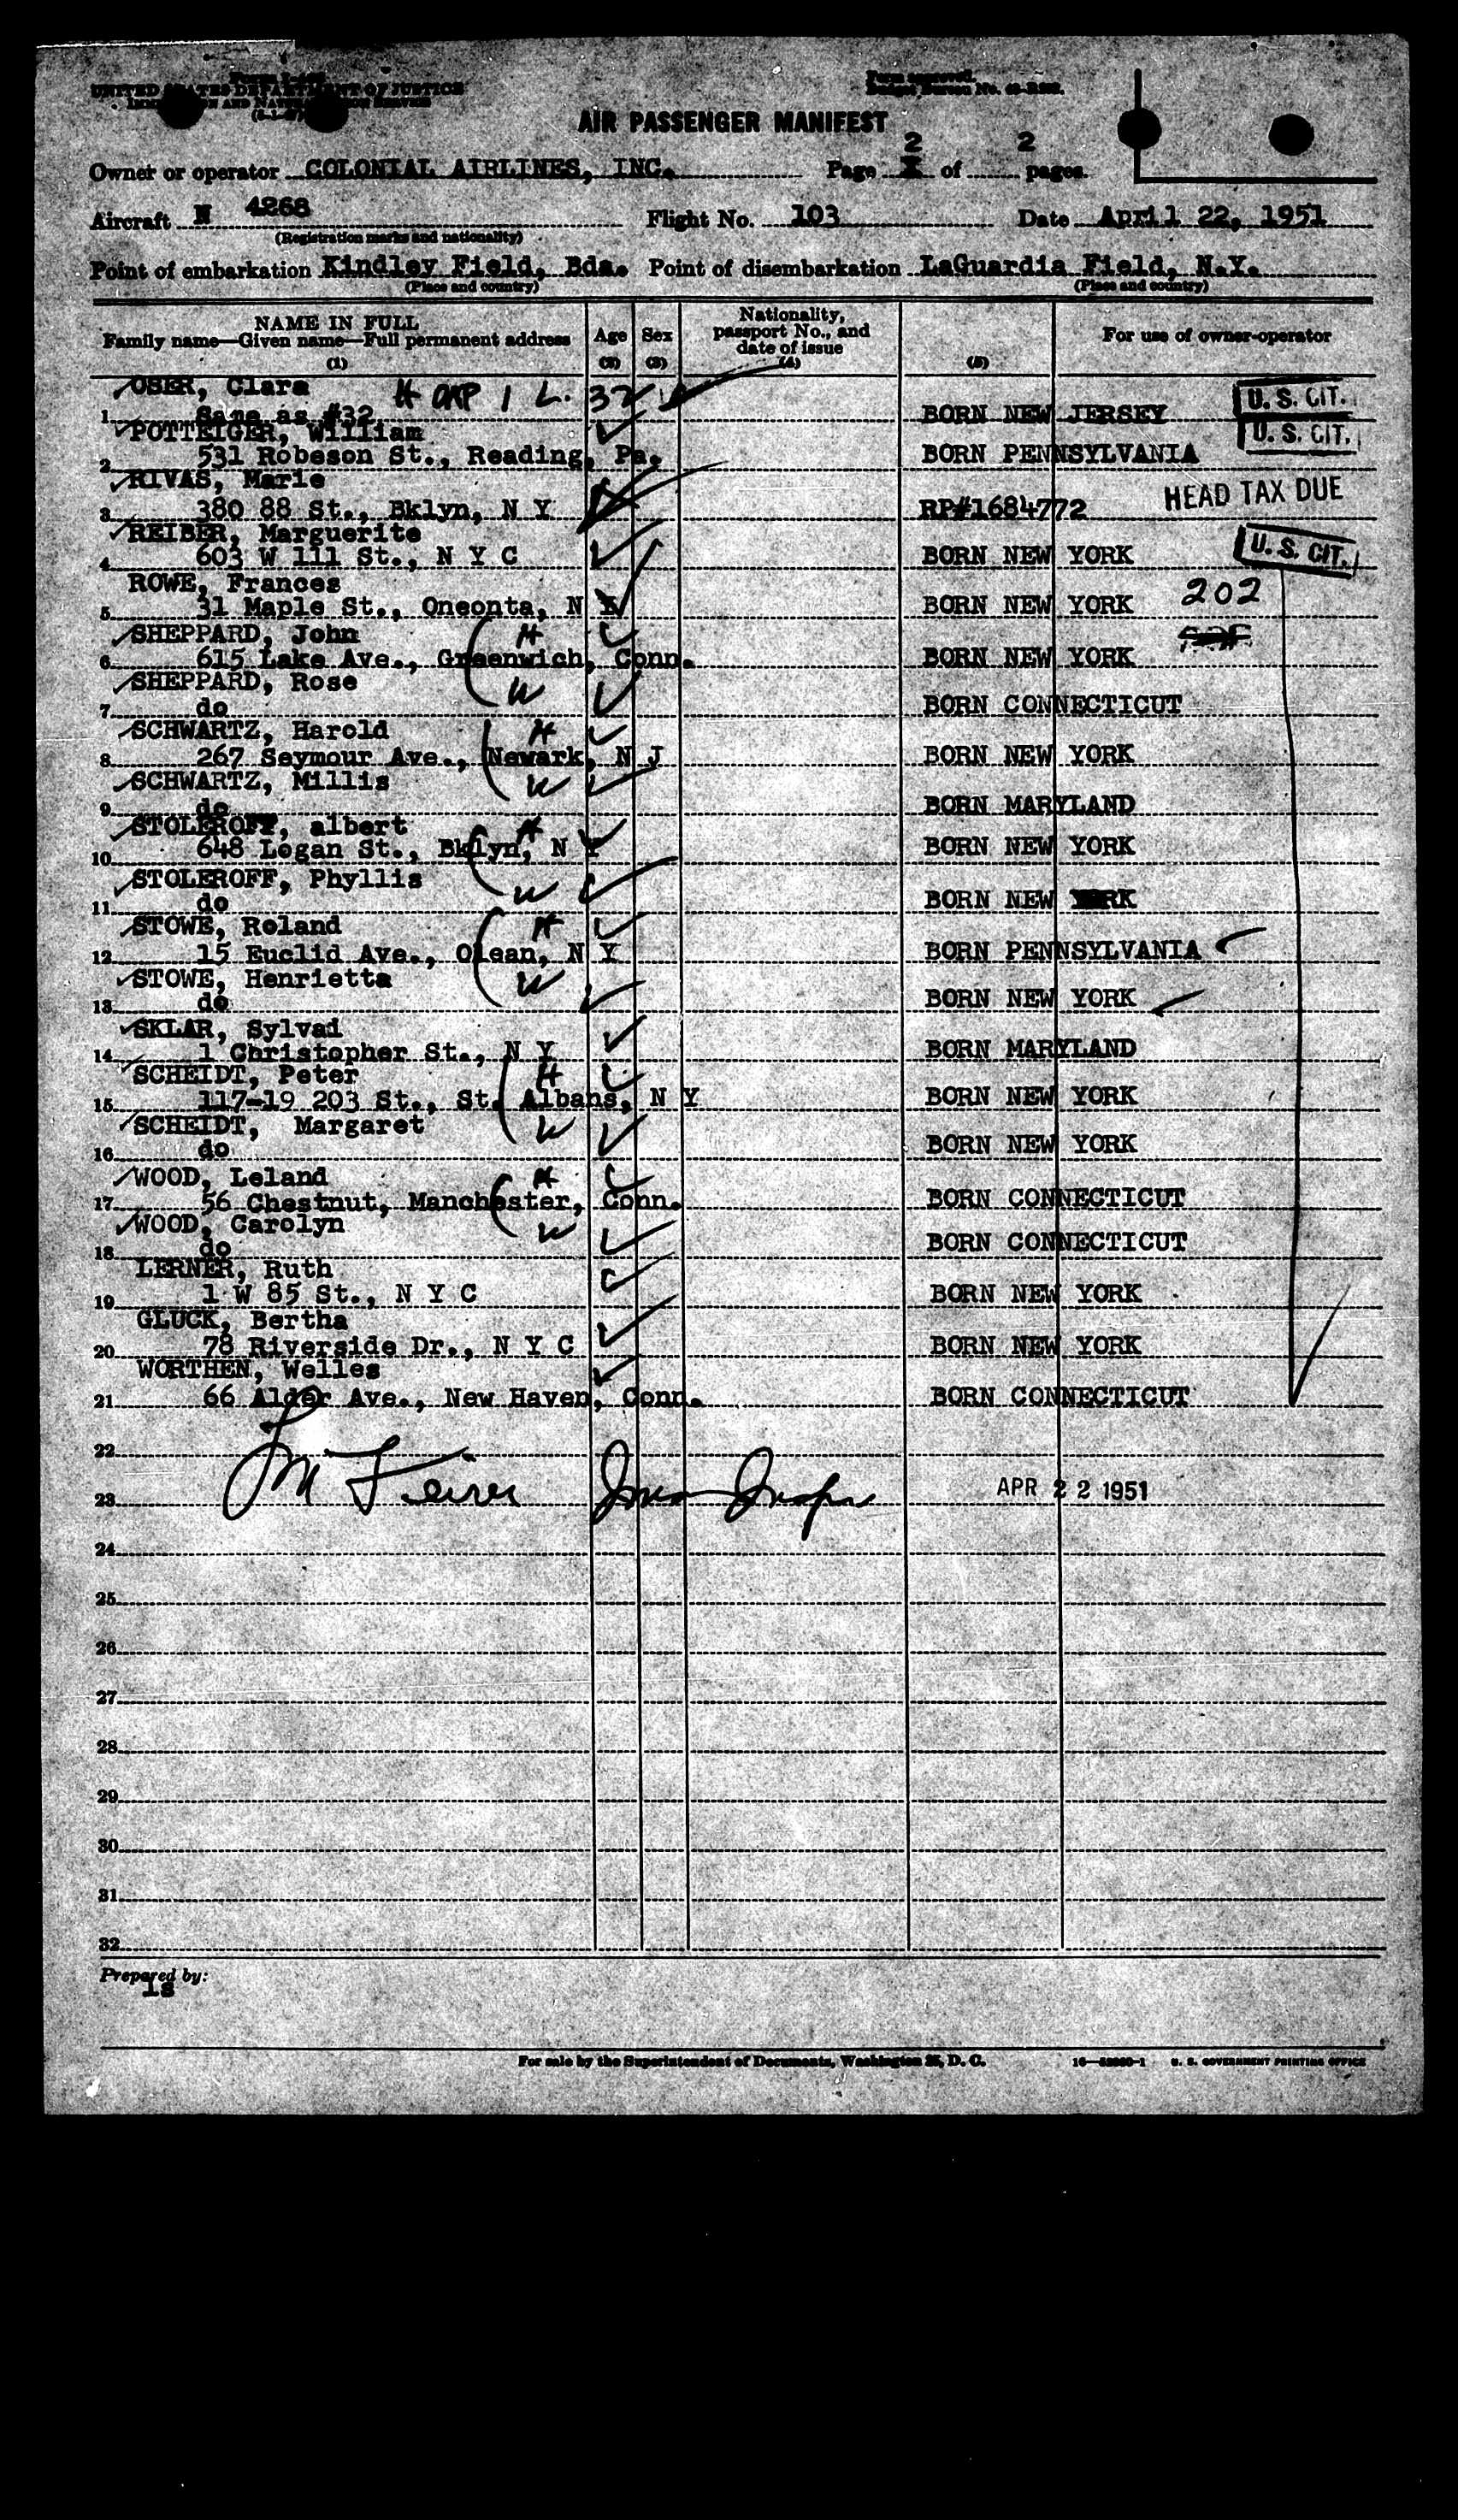 UNITED STATES DEPARTMENT OF JUSTICE
IMMIGRATION AND NATURALIZATION SERVICE
Form approved.
Budget Bureau No.
AIR PASSENGER MANIFEST
Owner or operator COLONIAL AIRLINES, INC. Page 2 of 2 pages.
Aircraft N 4268 Flight No. 103 Date April 22, 1951
(Registration marks and nationality)
Point of embarkation Kindley Field, Bda. Point of disembarkation LaGuardia Field, N.Y.
(Place and country) (Place and country)
NAME IN FULL
Family name—Given name—Full permanent address
(1)
Age
(2)
Sex
(3)
Nationality, passport No., and date of issue
(4)
(5)
For use of owner-operator
OSER, Clara
1. Same as #32 32 BORN NEW JERSEY U. S. CIT.
POTTEIGER, William
2. 531 Robeson St., Reading, Pa. BORN PENNSYLVANIA U. S. CIT.
RIVAS, Marie
3. 380 88 St., Bklyn, N Y RP#1684772 HEAD TAX DUE
REIBER, Marguerite
4. 603 W 111 St., N Y C BORN NEW YORK U. S. CIT.
ROWE, Frances
5. 31 Maple St., Oneonta, N Y BORN NEW YORK 202
SHEPPARD, John H
6. 615 Lake Ave., Greenwich, Conn. BORN NEW YORK
SHEPPARD, Rose W
7. do BORN CONNECTICUT
SCHWARTZ, Harold H
8. 267 Seymour Ave., Newark, N J BORN NEW YORK
SCHWARTZ, Millis W
9. do BORN MARYLAND
STOLEROFF, albert H
10. 648 Logan St., Bklyn, N Y BORN NEW YORK
STOLEROFF, Phyllis W
11. do BORN NEW YORK
STOWE, Roland H
12. 15 Euclid Ave., Olean, N Y BORN PENNSYLVANIA
STOWE, Henrietta W
13. do BORN NEW YORK
SKLAR, Sylvai
14. 1 Christopher St., N Y BORN MARYLAND
SCHEIDT, Peter H
15. 117-19 203 St., St. Albans, N Y BORN NEW YORK
SCHEIDT, Margaret W
16. do BORN NEW YORK
WOOD, Leland H
17. 56 Chestnut, Manchester, Conn. BORN CONNECTICUT
WOOD, Carolyn W
18. do BORN CONNECTICUT
LERNER, Ruth
19. 1 W 85 St., N Y C BORN NEW YORK
GLUCK, Bertha
20. 78 Riverside Dr., N Y C BORN NEW YORK
WORTHEN, Welles
21. 66 Alder Ave., New Haven, Conn. BORN CONNECTICUT
22.
23. APR 22 1951
24.
25.
26.
27.
28.
29.
30.
31.
32.
Prepared by:
ls
For sale by the Superintendent of Documents, Washington 25, D. C. U. S. GOVERNMENT PRINTING OFFICE